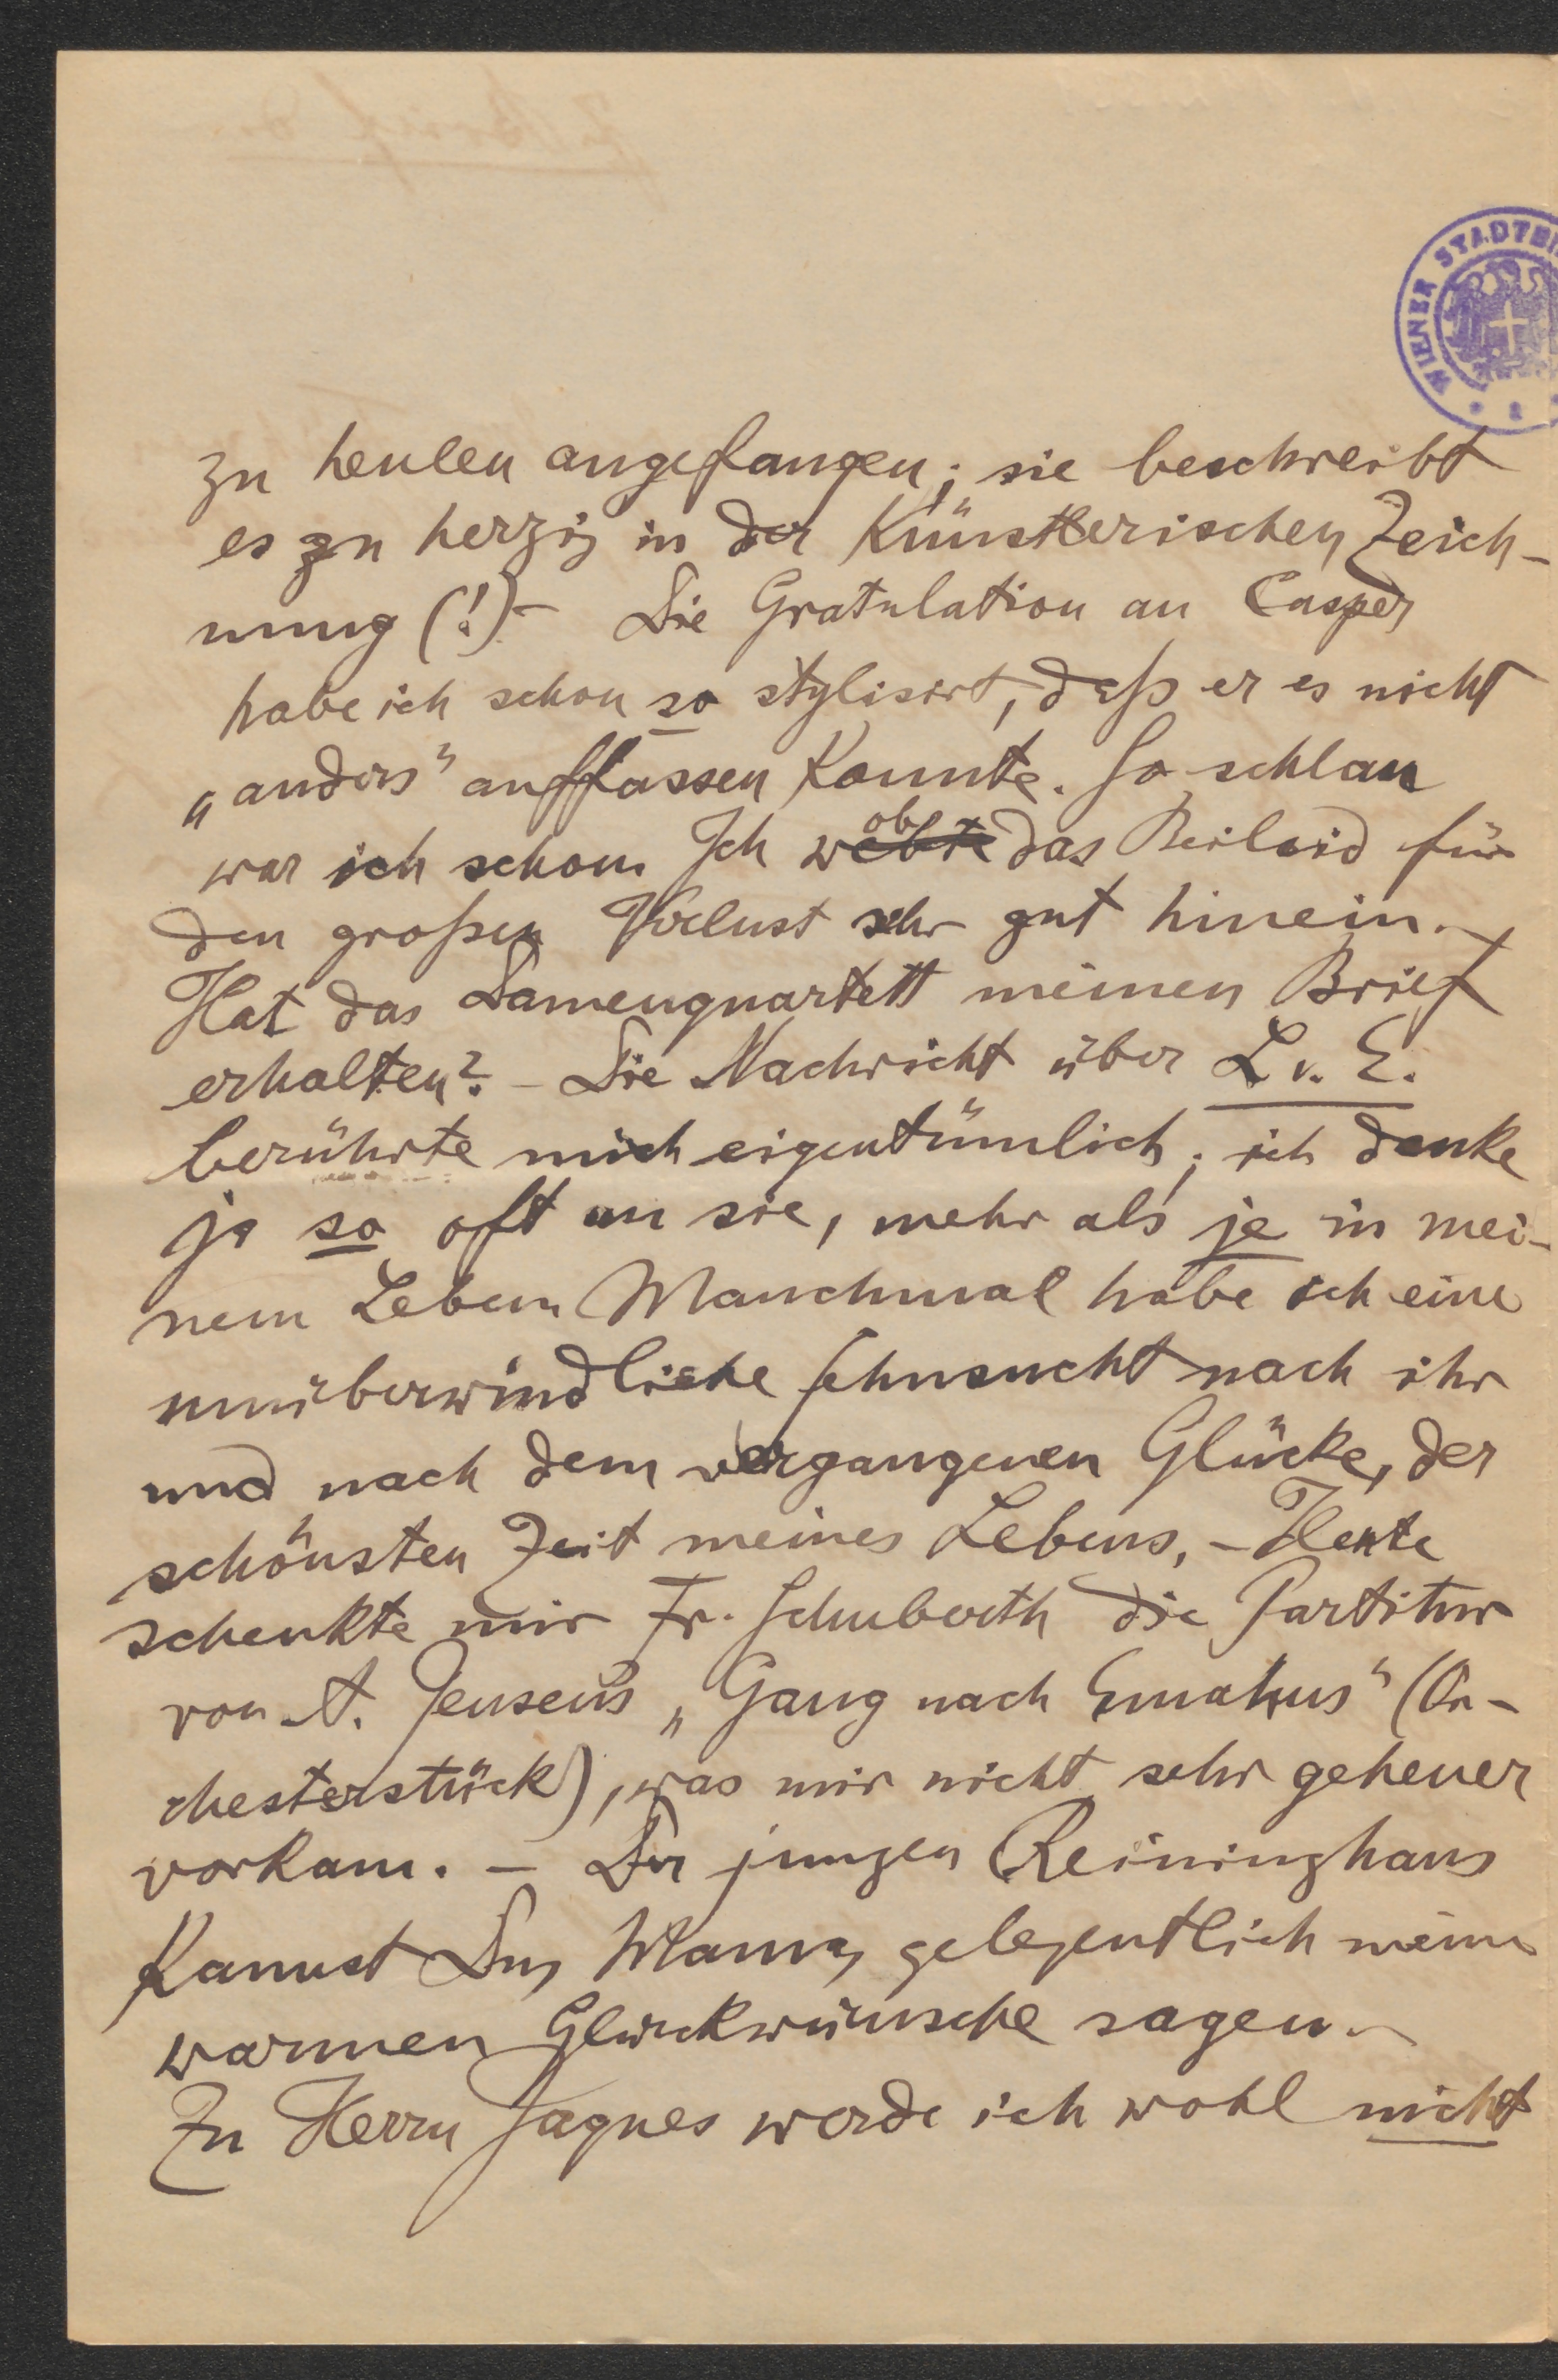 WIENER STADTBI
zu heulen angefangen; sie beschreibt
es zu herzig in der Künstlerischen Zeich-
nung (!) – Die Gratulation an Casper
habe ich schon so stylisirt, daß er es nicht
„anders" auffassen konnte. So schlau
war ich schon. Ich wob das Beileid für
den großen Verlust sehr gut hinein. –
Hat das Damenquartett meinen Brief
erhalten? – Die Nachricht über L. v. E.
berührte mich eigentümlich; ich denke
ja so oft an sie, mehr als je in mei-
nem Leben. Manchmal habe ich eine
unüberwindliche Sehnsucht nach ihr
und nach dem vergangenen Glücke, der
schönsten Zeit meines Lebens. – Heute
schenkte mir Fr. Schuberth die Partitur
von A. Jensen's „Gang nach Emahus" (Or-
chesterstück), was mir nicht sehr geheuer
vorkam. – Der jungen Reininghaus
kannst Du, Mama, gelegentlich meine
warmen Glückwünsche sagen. –
Zu Herrn Jaques werde ich wohl nicht